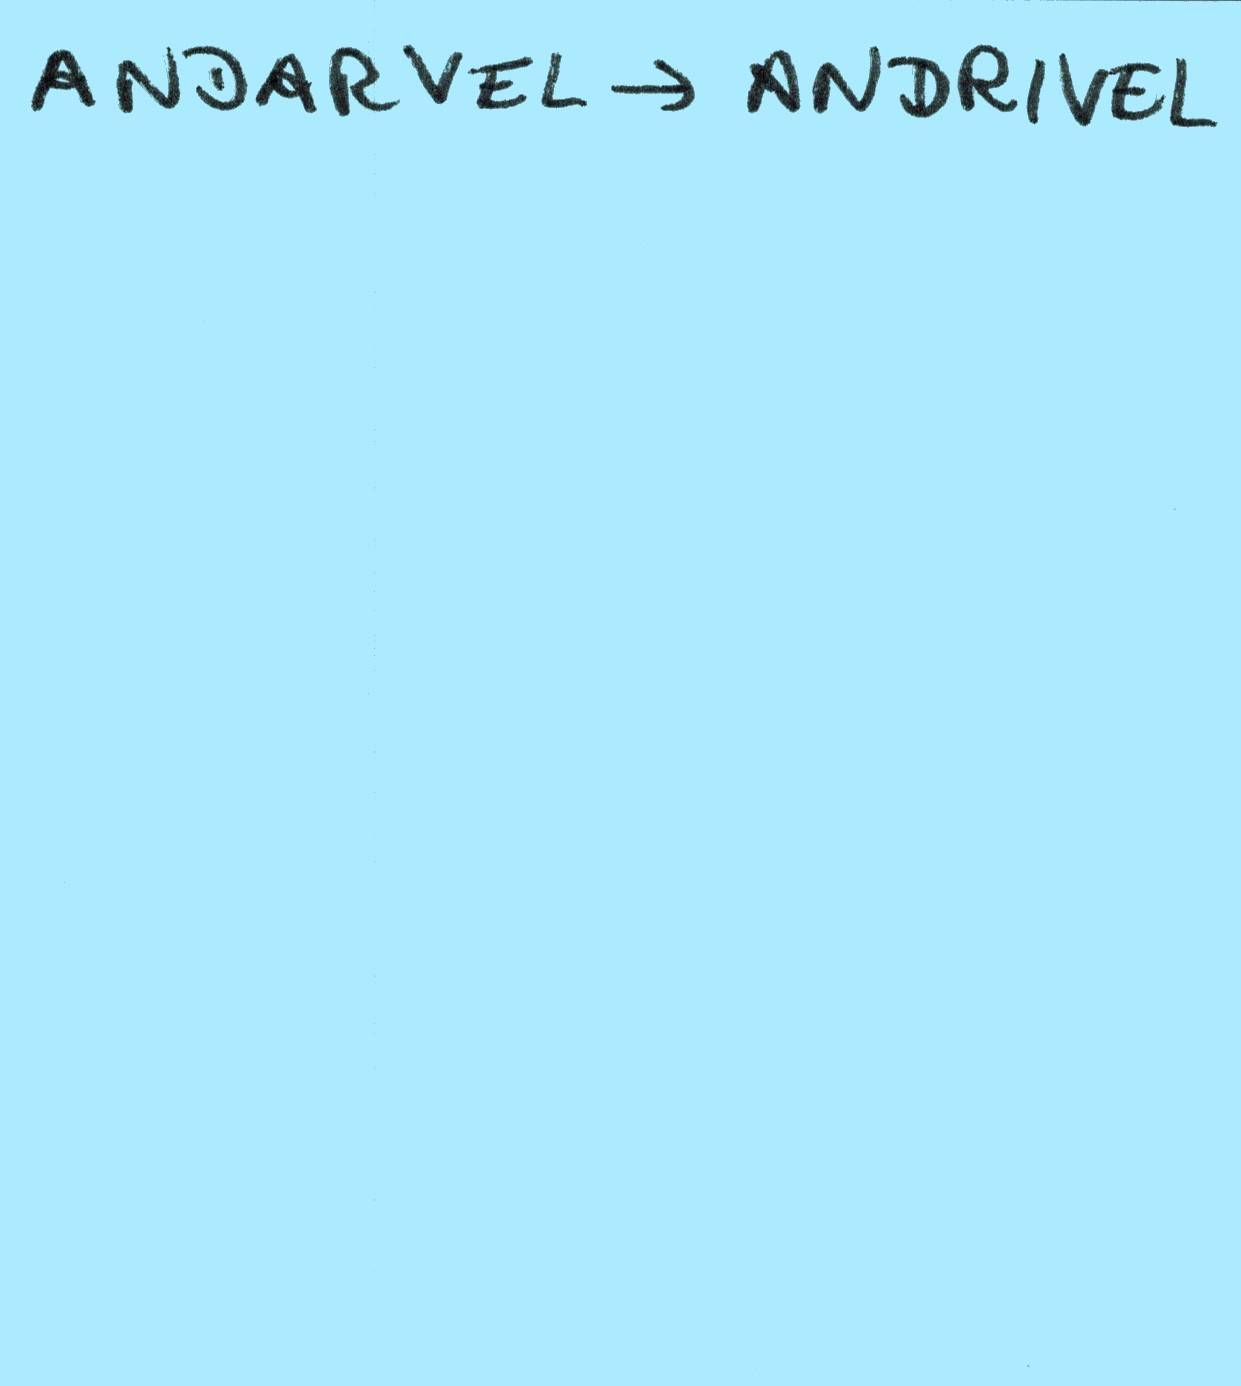 ANDARVEL → ANDRIVEL